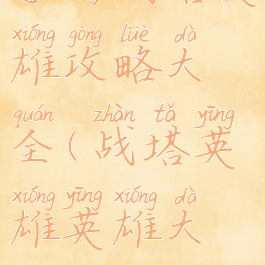 xióng gōng lüè dà
雄攻略大
quán zhàn tǎ yīng
全(战塔英
xióng yīng xióng dà
雄英雄大